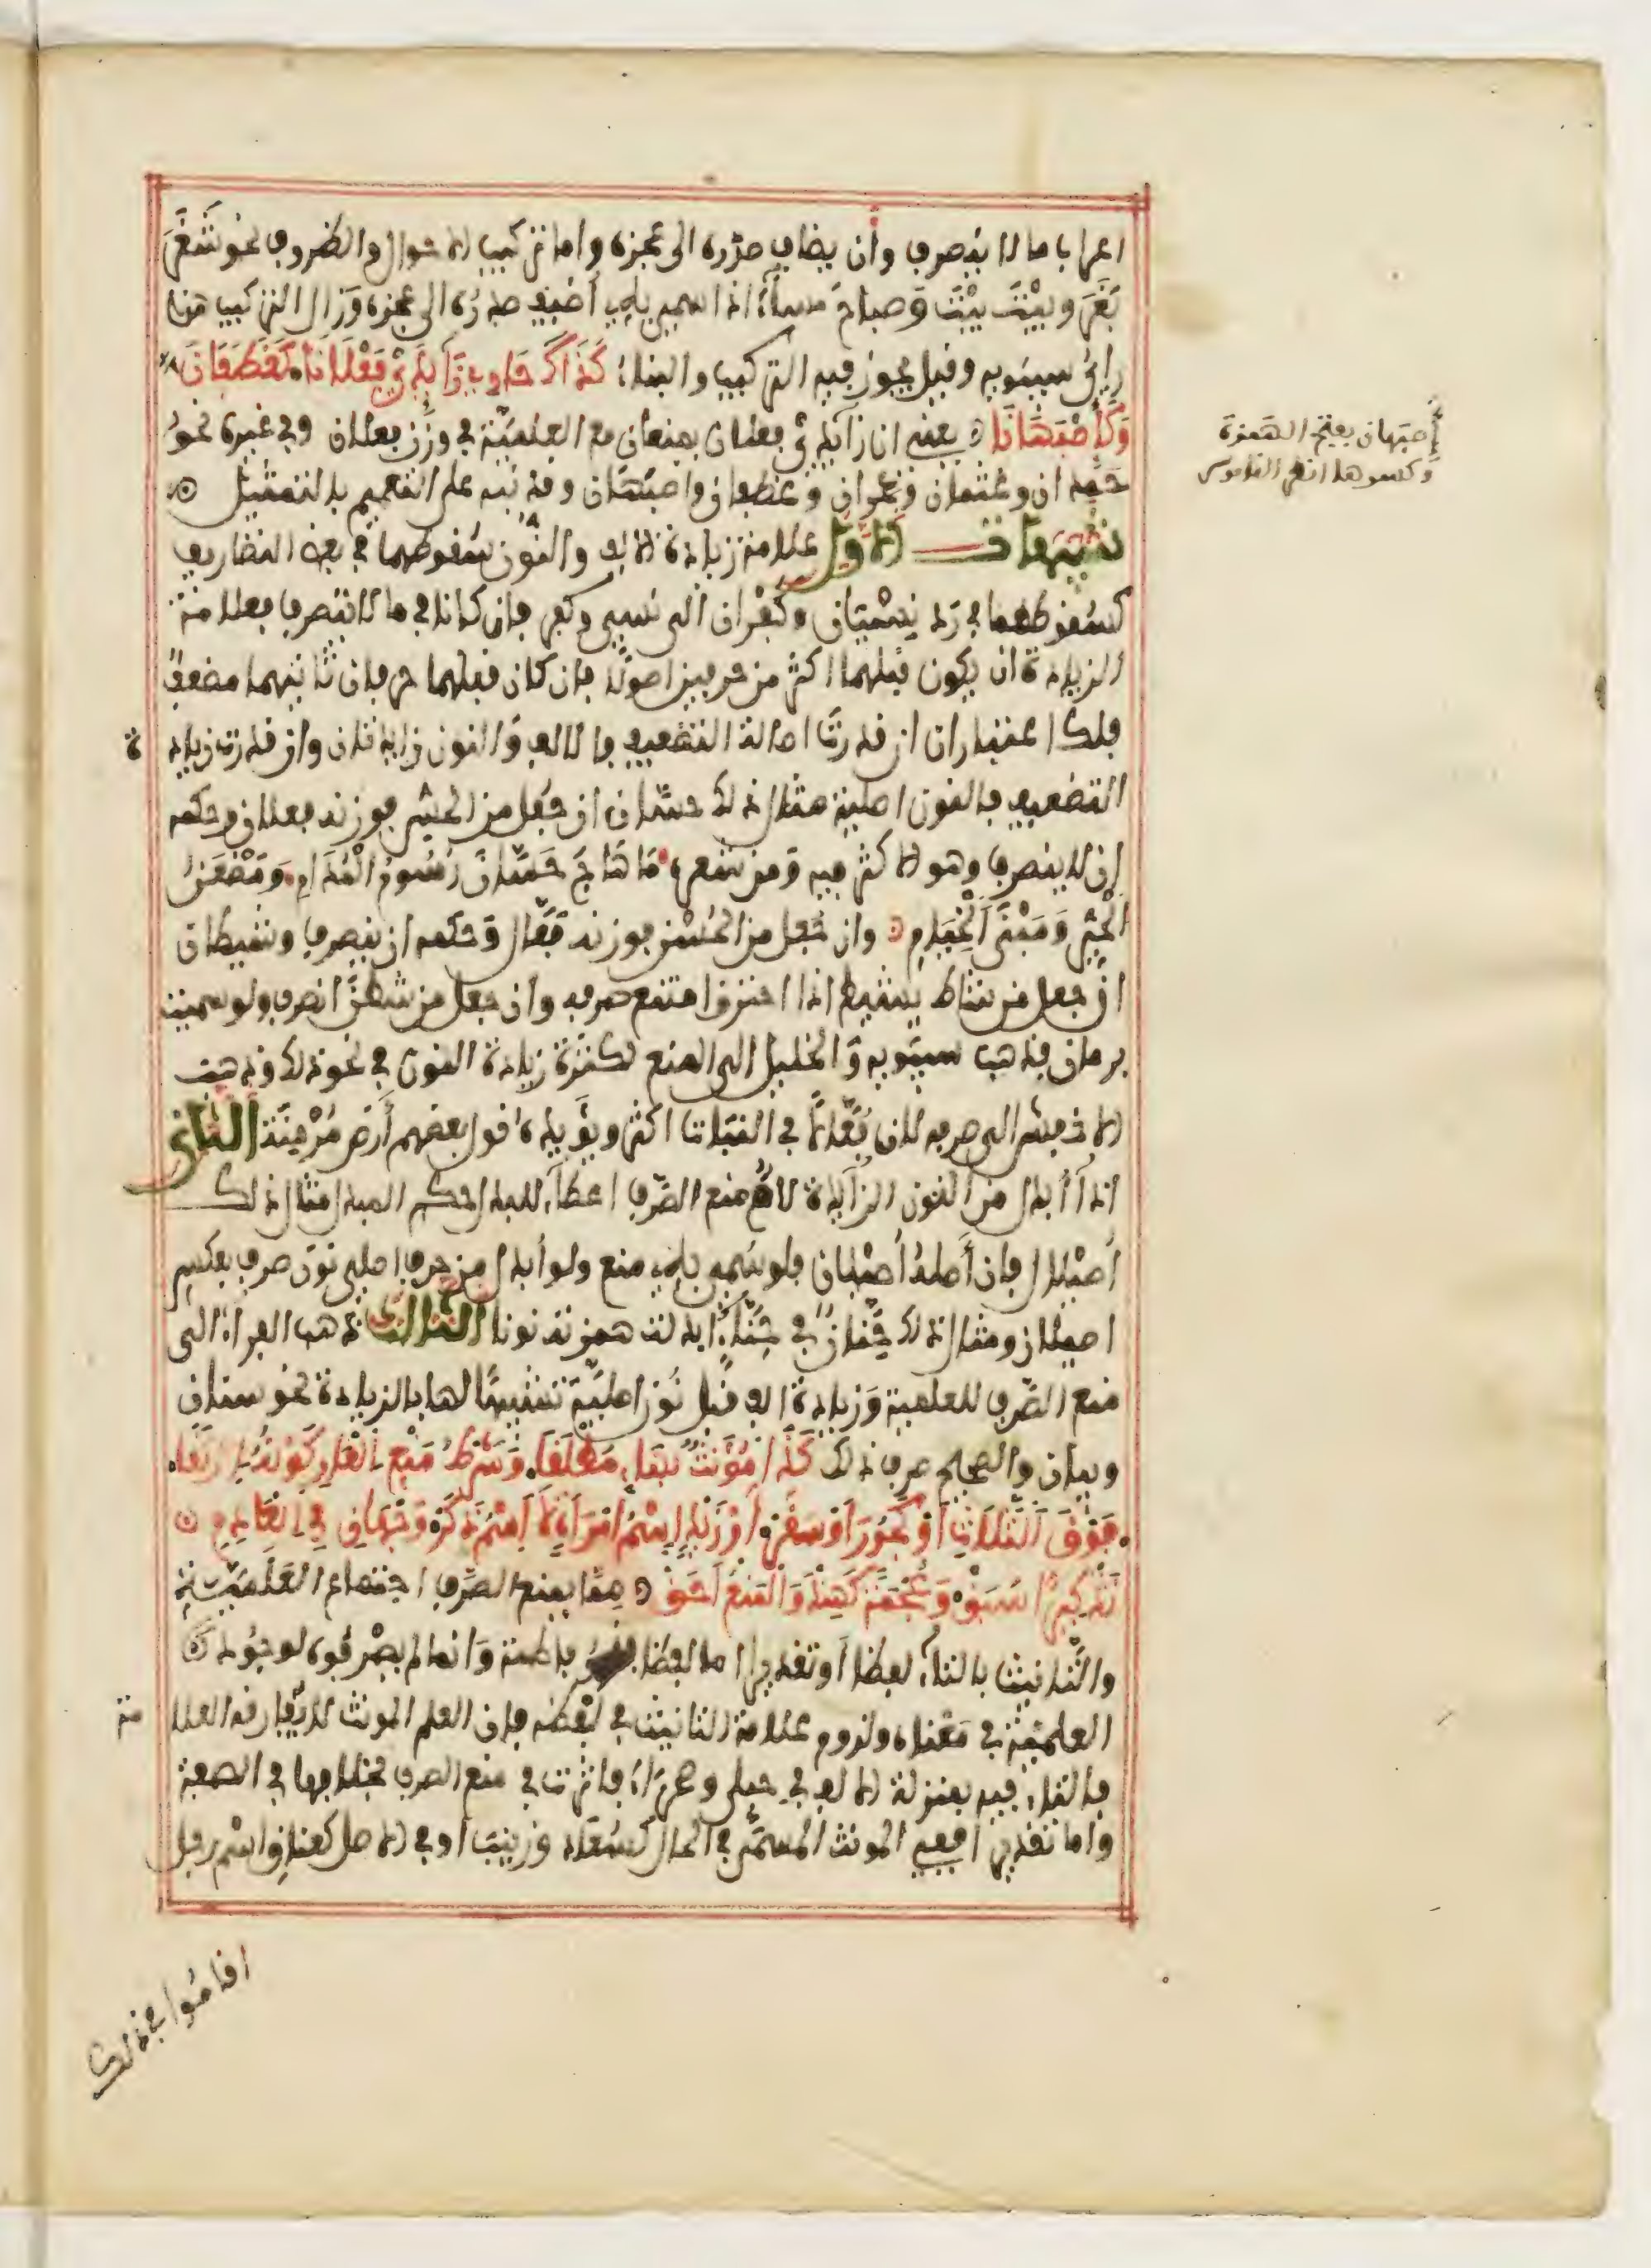 اعراب ما لا ينصرف وان يضاف صدره الى عجزه واما تركيب الاحوال والظروف نحو شغر
بغر وبيت بيت وصباح مساء اذا سمي به أضيف صدره الى عجزه وزال التركيب هذا
راي سيبويه وقيل يجوز فيه التركيب والبناء كذاك حاوي زايدي فعلانا كغطفان
وكأصبهانا يعني ان زايدي فعلان يمنعان مع العلمية في وزن فعلان وفي غيره نحو
حمدان وعثمان وعمران وغطفان واصبهان وقد نبه على التعميم بالتمثيل
تنبيهات الاول علامة زيادة الالف والنون سقوطهما في بعض التصاريف
كسقوطهما في رد نسيان وكفران الى نسي وكفر فإن كانا في ما لا يتصرف فعلامة
الزيادة ان يكون قبلهما اكثر من حرفين اصولا فان كان قبلهما حرفان ثانيهما مضعف
فلك اعتباران ان قدرت اصالة التضعيف فالالف والنون زايدتان وان قدرت زيادة
التضعيف فالنون اصلية مثال ذلك حسان ان جعل من الحس فوزنه فعلان وحكمه
ان لا ينصرف وهو الاكثر فيه ومن شعره ما هاج حسان رسوم المدام ومظعن
الحي ومبنى الخيام وان جعل من الحسن فوزنه فعال وحكمه ان ينصرف وشيطان
ان جعل من شاط يشيط اذا احترق امتنع صرفه وان جعل من شطن انصرف ولو سميت
برمان فذهب سيبويه والخليل الى المنع لكثرة زيادة النون في نحو ذلك وذهب
الاخفش الى صرفه لان فعالا في النبات اكثر ويؤيده قول بعضهم أرض مرمنة الثاني
اذا أبدل من النون الزايدة لام منع الصرف اعطاء للبدل حكم المبدل مثال ذلك
أصيلال فان أصله أصيلان فلو سمي به منع ولو أبدل من حرف اصلي نون صرف بعكس
اصيلال ومثال ذلك حنان في حناء ابدلت همزته نونا الثالث ذهب الفراء الى
منع الصرف للعلمية وزيادة الف قبل نون اصلية تشبيها لها بالزيادة نحو سنان
وبيان والصحيح صرف ذلك كذا مؤنث بهاء مطلقا وشرط منع العار كونه ارتقى
فوق الثلاث أو كجور أو سقر أو زيد اسم امرأة لا اسم ذكر وجهان في العادم
تذكيرا سبق وعجمة كهند والمنع أحق مما يمنع الصرف اجتماع العلمية
والتانيث بالتاء لفظا أو تقديرا اما لفظا فنحو فاطمة وانما لم يصرفوه لوجود
العلمية في معناه ولزوم علامة التانيث في لفظه فان العلم المونث لا تفارقه العلامة
فالتاء فيه بمنزلة الالف في حبلى وصحراء فاثرت في منع الصرف بخلافها في الصفة
واما تقديرا ففي المونث المسمى في الحال كسعاد وزينب أو في الاصل كعناق اسم رجل
اقاموا في ذلك
إصبهان بفتح الهمزة
وكسرها انظر القاموس